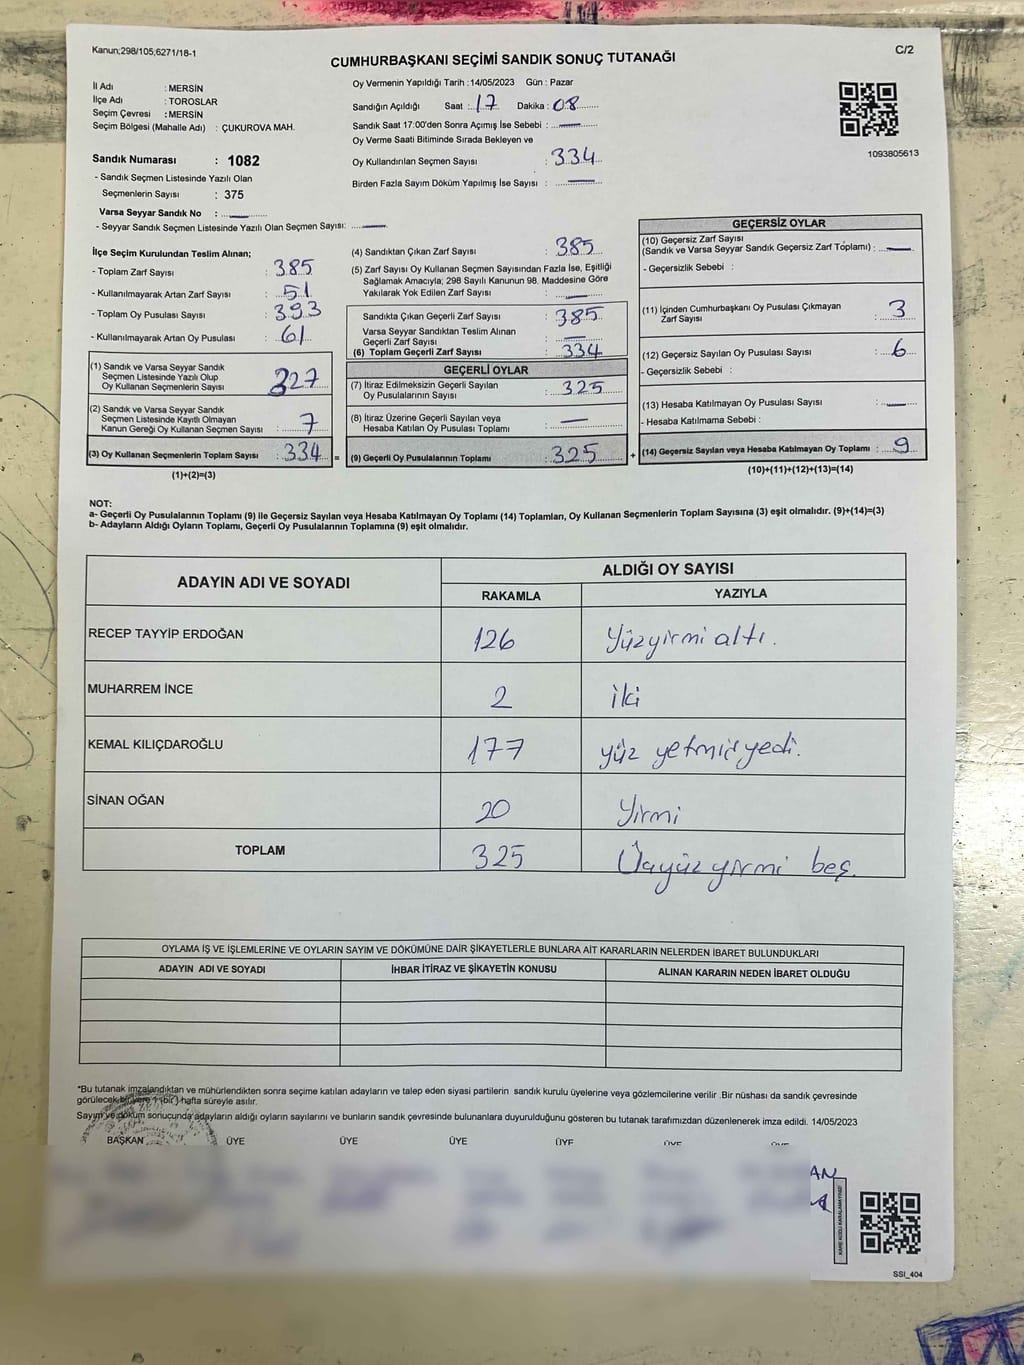 Kanun;298/105,6271/18-1
C/2
CUMHURBAŞKANI SEÇİMİ SANDIK SONUÇ TUTANAĞI
İl Adı : MERSİN
İlçe Adı : TOROSLAR
Seçim Çevresi : MERSİN
Seçim Bölgesi (Mahalle Adı) : ÇUKUROVA MAH.
Sandık Numarası : 1082
- Sandık Seçmen Listesinde Yazılı Olan
Seçmenlerin Sayısı : 375
Varsa Seyyar Sandık No :
- Seyyar Sandık Seçmen Listesinde Yazılı Olan Seçmen Sayısı:
Oy Vermenin Yapıldığı Tarih : 14/05/2023 Gün : Pazar
Sandığın Açıldığı Saat : 17 Dakika : 08
Sandık Saat 17:00'den Sonra Açımış İse Sebebi :
Oy Verme Saati Bitiminde Sırada Bekleyen ve
Oy Kullandırılan Seçmen Sayısı : 334
Birden Fazla Sayım Döküm Yapılmış İse Sayısı :
1093805613
İlçe Seçim Kurulundan Teslim Alınan;
- Toplam Zarf Sayısı : 385
- Kullanılmayarak Artan Zarf Sayısı : 51
- Toplam Oy Pusulası Sayısı : 393
- Kullanılmayarak Artan Oy Pusulası : 61
(1) Sandık ve Varsa Seyyar Sandık
Seçmen Listesinde Yazılı Olup
Oy Kullanan Seçmenlerin Sayısı : 327
(2) Sandık ve Varsa Seyyar Sandık
Seçmen Listesinde Kayıtlı Olmayan
Kanun Gereği Oy Kullanan Seçmen Sayısı : 7
(3) Oy Kullanan Seçmenlerin Toplam Sayısı : 334
(1)+(2)=(3)
(4) Sandıktan Çıkan Zarf Sayısı : 385
(5) Zarf Sayısı Oy Kullanan Seçmen Sayısından Fazla İse, Eşitliği
Sağlamak Amacıyla; 298 Sayılı Kanunun 98. Maddesine Göre
Yakılarak Yok Edilen Zarf Sayısı :
Sandıkta Çıkan Geçerli Zarf Sayısı : 385
Varsa Seyyar Sandıktan Teslim Alınan
Geçerli Zarf Sayısı :
(6) Toplam Geçerli Zarf Sayısı : 334
GEÇERLİ OYLAR
(7) İtiraz Edilmeksizin Geçerli Sayılan
Oy Pusulalarının Sayısı : 325
(8) İtiraz Üzerine Geçerli Sayılan veya
Hesaba Katılan Oy Pusulası Toplamı :
= (9) Geçerli Oy Pusulalarının Toplamı : 325 +
GEÇERSİZ OYLAR
(10) Geçersiz Zarf Sayısı
(Sandık ve Varsa Seyyar Sandık Geçersiz Zarf Toplamı) :
- Geçersizlik Sebebi :
(11) İçinden Cumhurbaşkanı Oy Pusulası Çıkmayan
Zarf Sayısı : 3
(12) Geçersiz Sayılan Oy Pusulası Sayısı : 6
- Geçersizlik Sebebi :
(13) Hesaba Katılmayan Oy Pusulası Sayısı :
- Hesaba Katılmama Sebebi :
(14) Geçersiz Sayılan veya Hesaba Katılmayan Oy Toplamı : 9
(10)+(11)+(12)+(13)=(14)
NOT:
a- Geçerli Oy Pusulalarının Toplamı (9) ile Geçersiz Sayılan veya Hesaba Katılmayan Oy Toplamı (14) Toplamları, Oy Kullanan Seçmenlerin Toplam Sayısına (3) eşit olmalıdır. (9)+(14)=(3)
b- Adayların Aldığı Oyların Toplamı, Geçerli Oy Pusulalarının Toplamına (9) eşit olmalıdır.
ADAYIN ADI VE SOYADI
ALDIĞI OY SAYISI
RAKAMLA YAZIYLA
RECEP TAYYİP ERDOĞAN 126 Yüzyirmi altı.
MUHARREM İNCE 2 iki
KEMAL KILIÇDAROĞLU 177 yüz yetmiş yedi.
SİNAN OĞAN 20 Yirmi
TOPLAM 325 Üçyüz yirmi beş.
OYLAMA İŞ VE İŞLEMLERİNE VE OYLARIN SAYIM VE DÖKÜMÜNE DAİR ŞİKAYETLERLE BUNLARA AİT KARARLARIN NELERDEN İBARET BULUNDUKLARI
ADAYIN ADI VE SOYADI İHBAR İTİRAZ VE ŞİKAYETİN KONUSU ALINAN KARARIN NEDEN İBARET OLDUĞU
*Bu tutanak imzalandıktan ve mühürlendikten sonra seçime katılan adayların ve talep eden siyasi partilerin sandık kurulu üyelerine veya gözlemcilerine verilir .Bir nüshası da sandık çevresinde
görülecek bir yere 1 (bir) hafta süreyle asılır.
Sayım ve döküm sonucunda adayların aldığı oyların sayılarını ve bunların sandık çevresinde bulunanlara duyurulduğunu gösteren bu tutanak tarafımızdan düzenlenerek imza edildi. 14/05/2023
BAŞKAN ÜYE ÜYE ÜYE ÜYE ÜYE
AN
SSI_404